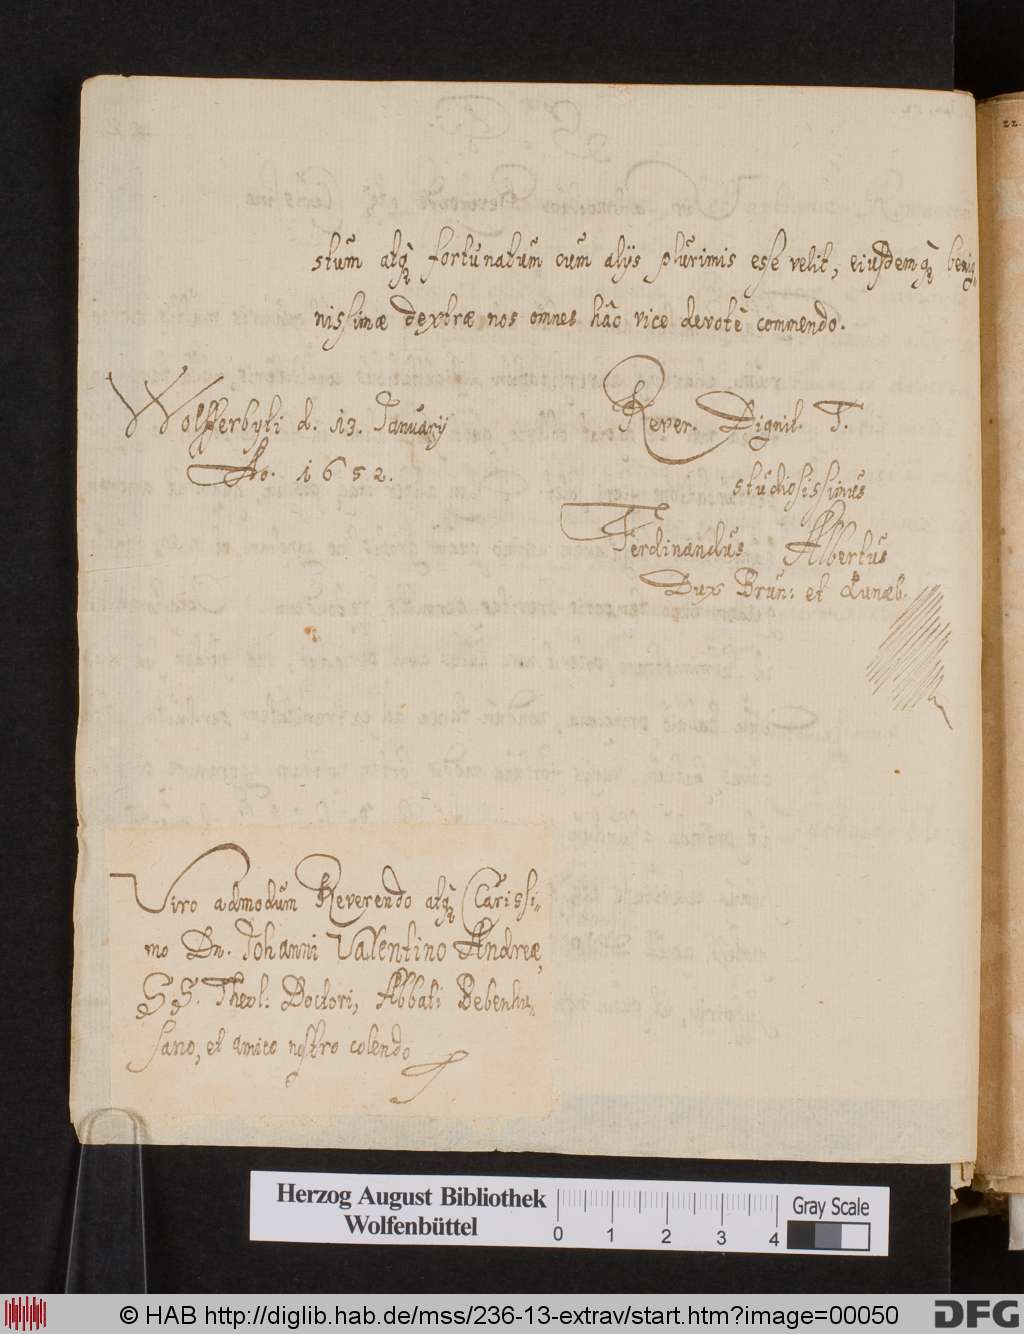 stum atq fortunatum cum alÿs plurimis esse velit, eiusdemq benig-
nissimæ dextræ nos omnes hâc vice devotè commendo.
Wolfferbyti d. 13. Januarÿ
Ao. 1652.
Rever. Dignit. T.
studiosissimus
Ferdinandus Albertus
Dux Brun: et Lunæb.
Viro admodum Reverendo atq Clarissi-
mo Dn. Johanni Valentino Andreæ,
SS. Theol: Doctori, Abbati Bebenhu-
sano, et amico nostro colendo
Herzog August Bibliothek
Wolfenbüttel
0 1 2 3 4
Gray Scale
© HAB http://diglib.hab.de/mss/236-13-extrav/start.htm?image=00050
DFG